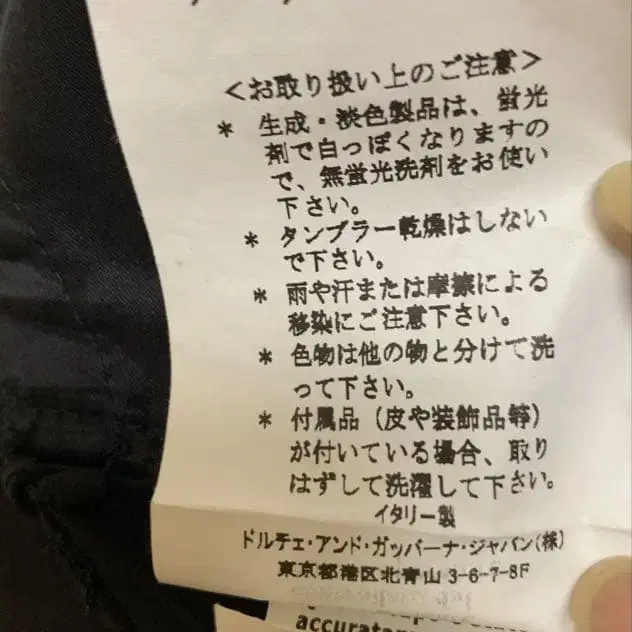 <お取り扱い上のご注意>
* 生成・淡色製品は、蛍光
剤で白っぽくなりますの
で、無蛍光洗剤をお使い
下さい。
* タンブラー乾燥はしない
で下さい。
* 雨や汗または摩擦による
移染にご注意下さい。
* 色物は他の物と分けて洗
って下さい。
* 付属品（皮や装飾品等）
が付いている場合、取り
はずして洗濯して下さい。
イタリー製
ドルチェ・アンド・ガッバーナ・ジャパン(株)
東京都港区北青山 3-6-7-8F